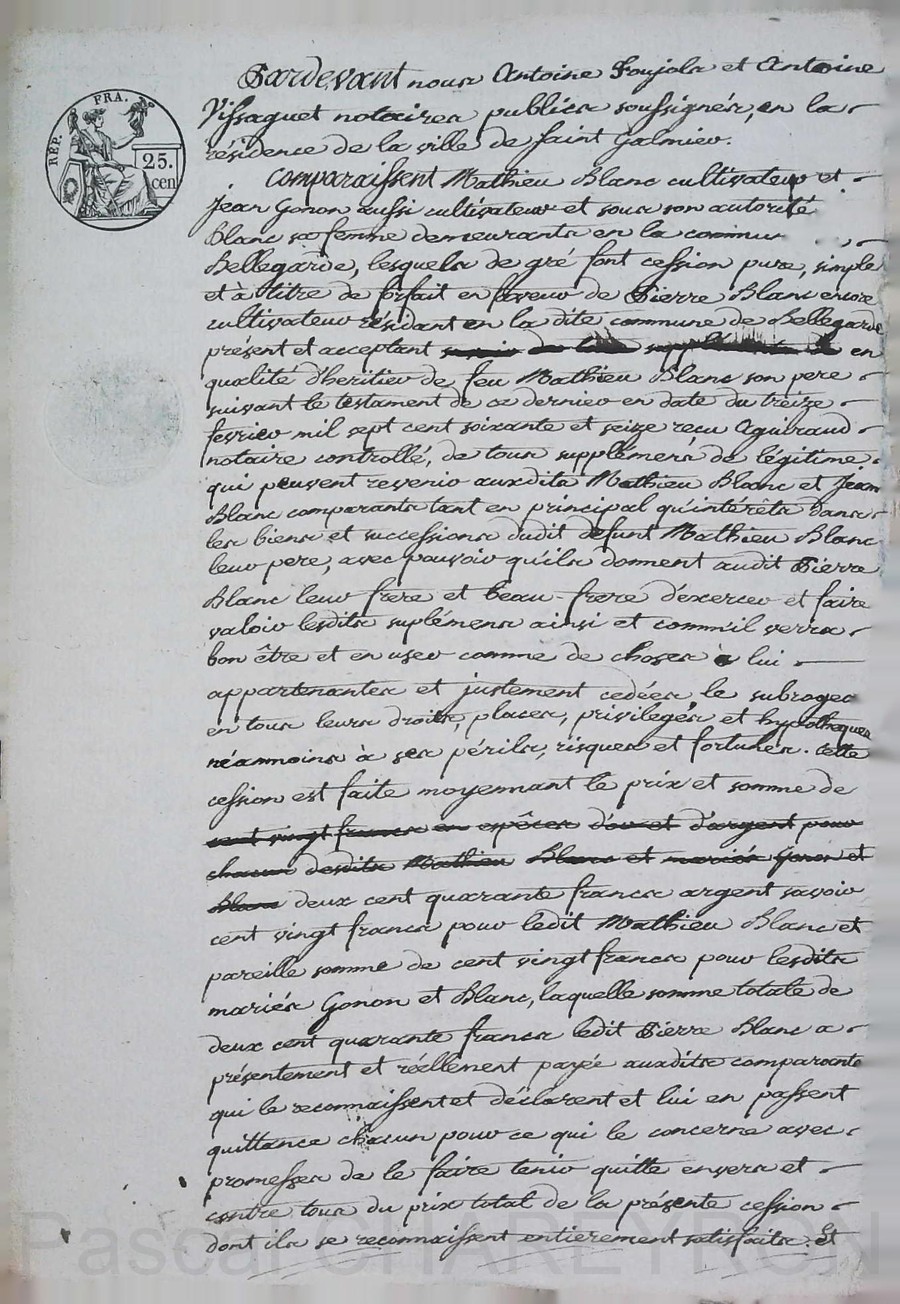 RÉP. FRA.
25.
cen
Pardevant nous Antoine Foujols et Antoine
Vissaguet notaires publics soussignés, en la
résidence de la ville de Saint Galmier.
Comparaissent Mathieu Blanc cultivateur et
Jean Gonon aussi cultivateur et sous son autorité
Blanc sa femme demeurants en la commu
Bellegarde, lesquels de gré font cession pure, simple
et à titre de forfait en faveur de Pierre Blanc encore
cultivateur résidant en la dite commune de Bellegarde
présent et acceptant en
qualité d'heritier de feu Mathieu Blanc son pere
suivant le testament de ce dernier en date du treize
fevrier mil sept cent soixante et seize reçu Aguiraud
notaire controllé, de tous supplémens de légitime
qui peuvent revenir auxdits Mathieu Blanc et Jean
Blanc comparants tant en principal qu'intérêts dans
les biens et successions dudit defunt Mathieu Blanc
leur pere, avec pouvoir qu'ils donnent audit Pierre
Blanc leur frere et beau-frere d'exercer et faire
valoir lesdits suplémens ainsi et comm'il verra
bon être et en user comme de choses à lui
appartenantes et justement cedées le subroger
en tous leurs droits, places, privilegés et hypotheques
néanmoins à ses périls, risques et fortunes. Cette
cession est faite moyennant le prix et somme de
cent vingt francs en espèces d'or et d'argent pour
chacun desdits Mathieu Blanc et mariés Gonon et
Blanc deux cent quarante francs argent savoir
cent vingt francs pour ledit Mathieu Blanc et
pareille somme de cent vingt francs pour lesdits
mariés Gonon et Blanc, laquelle somme totale de
deux cent quarante francs ledit Pierre Blanc a
présentement et réellement payée auxdits comparants
qui le reconnaissent et déclarent et lui en passent
quittance chacun pour ce qui le concerne avec
promesses de le faire tenir quitte envers et
contre tous du prix total de la présente cession
dont ils se reconnaissent entierement satisfaits. Et
Pascal CHAREYRON